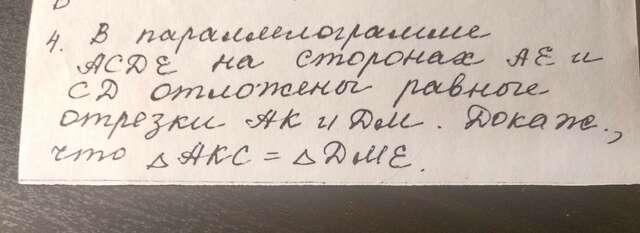 4. В параллелограмме
ACDE на сторонах AE и
CD отложены равные
отрезки AK и DM. Докаж.,
что △AKC = △DME.